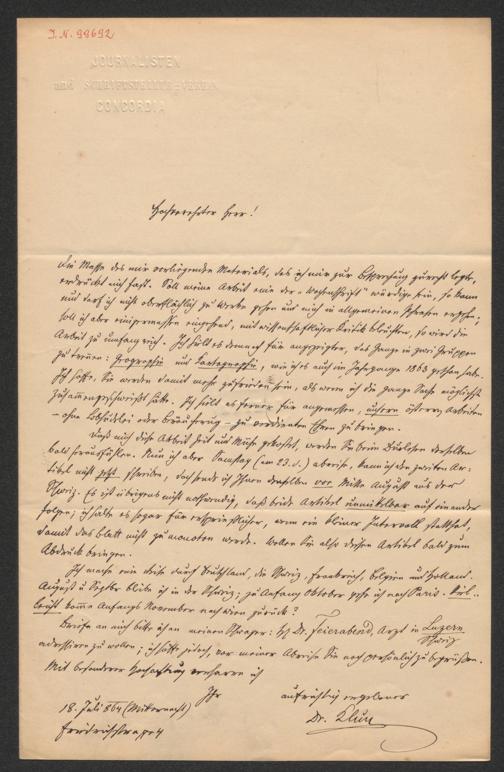 J. N. 98692
JOURNALISTEN
und SCHRIFTSTELLER-VEREIN
CONCORDIA
Hochverehrter Herr!
Die Masse des mir vorliegenden Materials, das ich mir zur Besprechung zurecht legte,
erdrückt mich fast. Soll meine Arbeit eine der "Wochenschrift" würdige sein, so kann
und darf ich nicht oberflächlich zu Werke gehen und mich in allgemeinen Phrasen ergehen;
soll ich aber einigermassen eingehend, und wissenschaftlicher Kritik  so wird die
Arbeit zu umfangreich. Ich hielt es demnach für angezeigter, das Ganze in zwei Gruppen
zu trennen: Geographie und Kartographie, wie ich es auch im Jahrgange 1863 gethan habe.
Ich hoffe, Sie werden damit mehr zufrieden sein, als wenn ich die ganze Sache möglichst
zusammengeschweißt hätte. Ich hielt es ferner für angemessen, unsern österr. Arbeiten
– ohne Lobhudelei oder  – zu verdienten Ehren zu bringen.
Daß mich diese Arbeit Zeit und Mühe gekostet, werden Sie beim Durchlesen derselben
bald herausfühlen. Nun ich aber Samstag (am 23. d.) abreise, kann ich den zweiten Ar-
tikel nicht jetzt schreiben, doch sende ich Ihnen denselben vor Mitte August aus der
Schweiz. Es ist übrigens nicht nothwendig, daß beide Artikel unmittelbar auf einander
folgen; ich halte es sogar für ersprießlicher, wenn ein kleiner Intervall statthat,
damit das Blatt nicht zu monoton werde. Wollen Sie also diesen Artikel bald zum
Abdruck bringen.
Ich mache eine Reise durch Deutschland, die Schweiz, Frankreich, Belgien und Holland.
August u. Septbr bleibe ich in der Schweiz; zu Anfang Oktober gehe ich nach Paris. Viel-
leicht komme Anfangs November nach Wien zurück?
Briefe an mich bitte ich an meinen Schwager: Hr. Dr. Feierabend, Arzt in Luzern
Schweiz
adressiren zu wollen; ich hoffe jedoch, vor meiner Abreise Sie noch persönlich zu begrüßen.
Mit besonderer Hochachtung verharre ich
Ihr
aufrichtig ergebener
Dr. Klun
18. Juli 864 (Mitternacht)